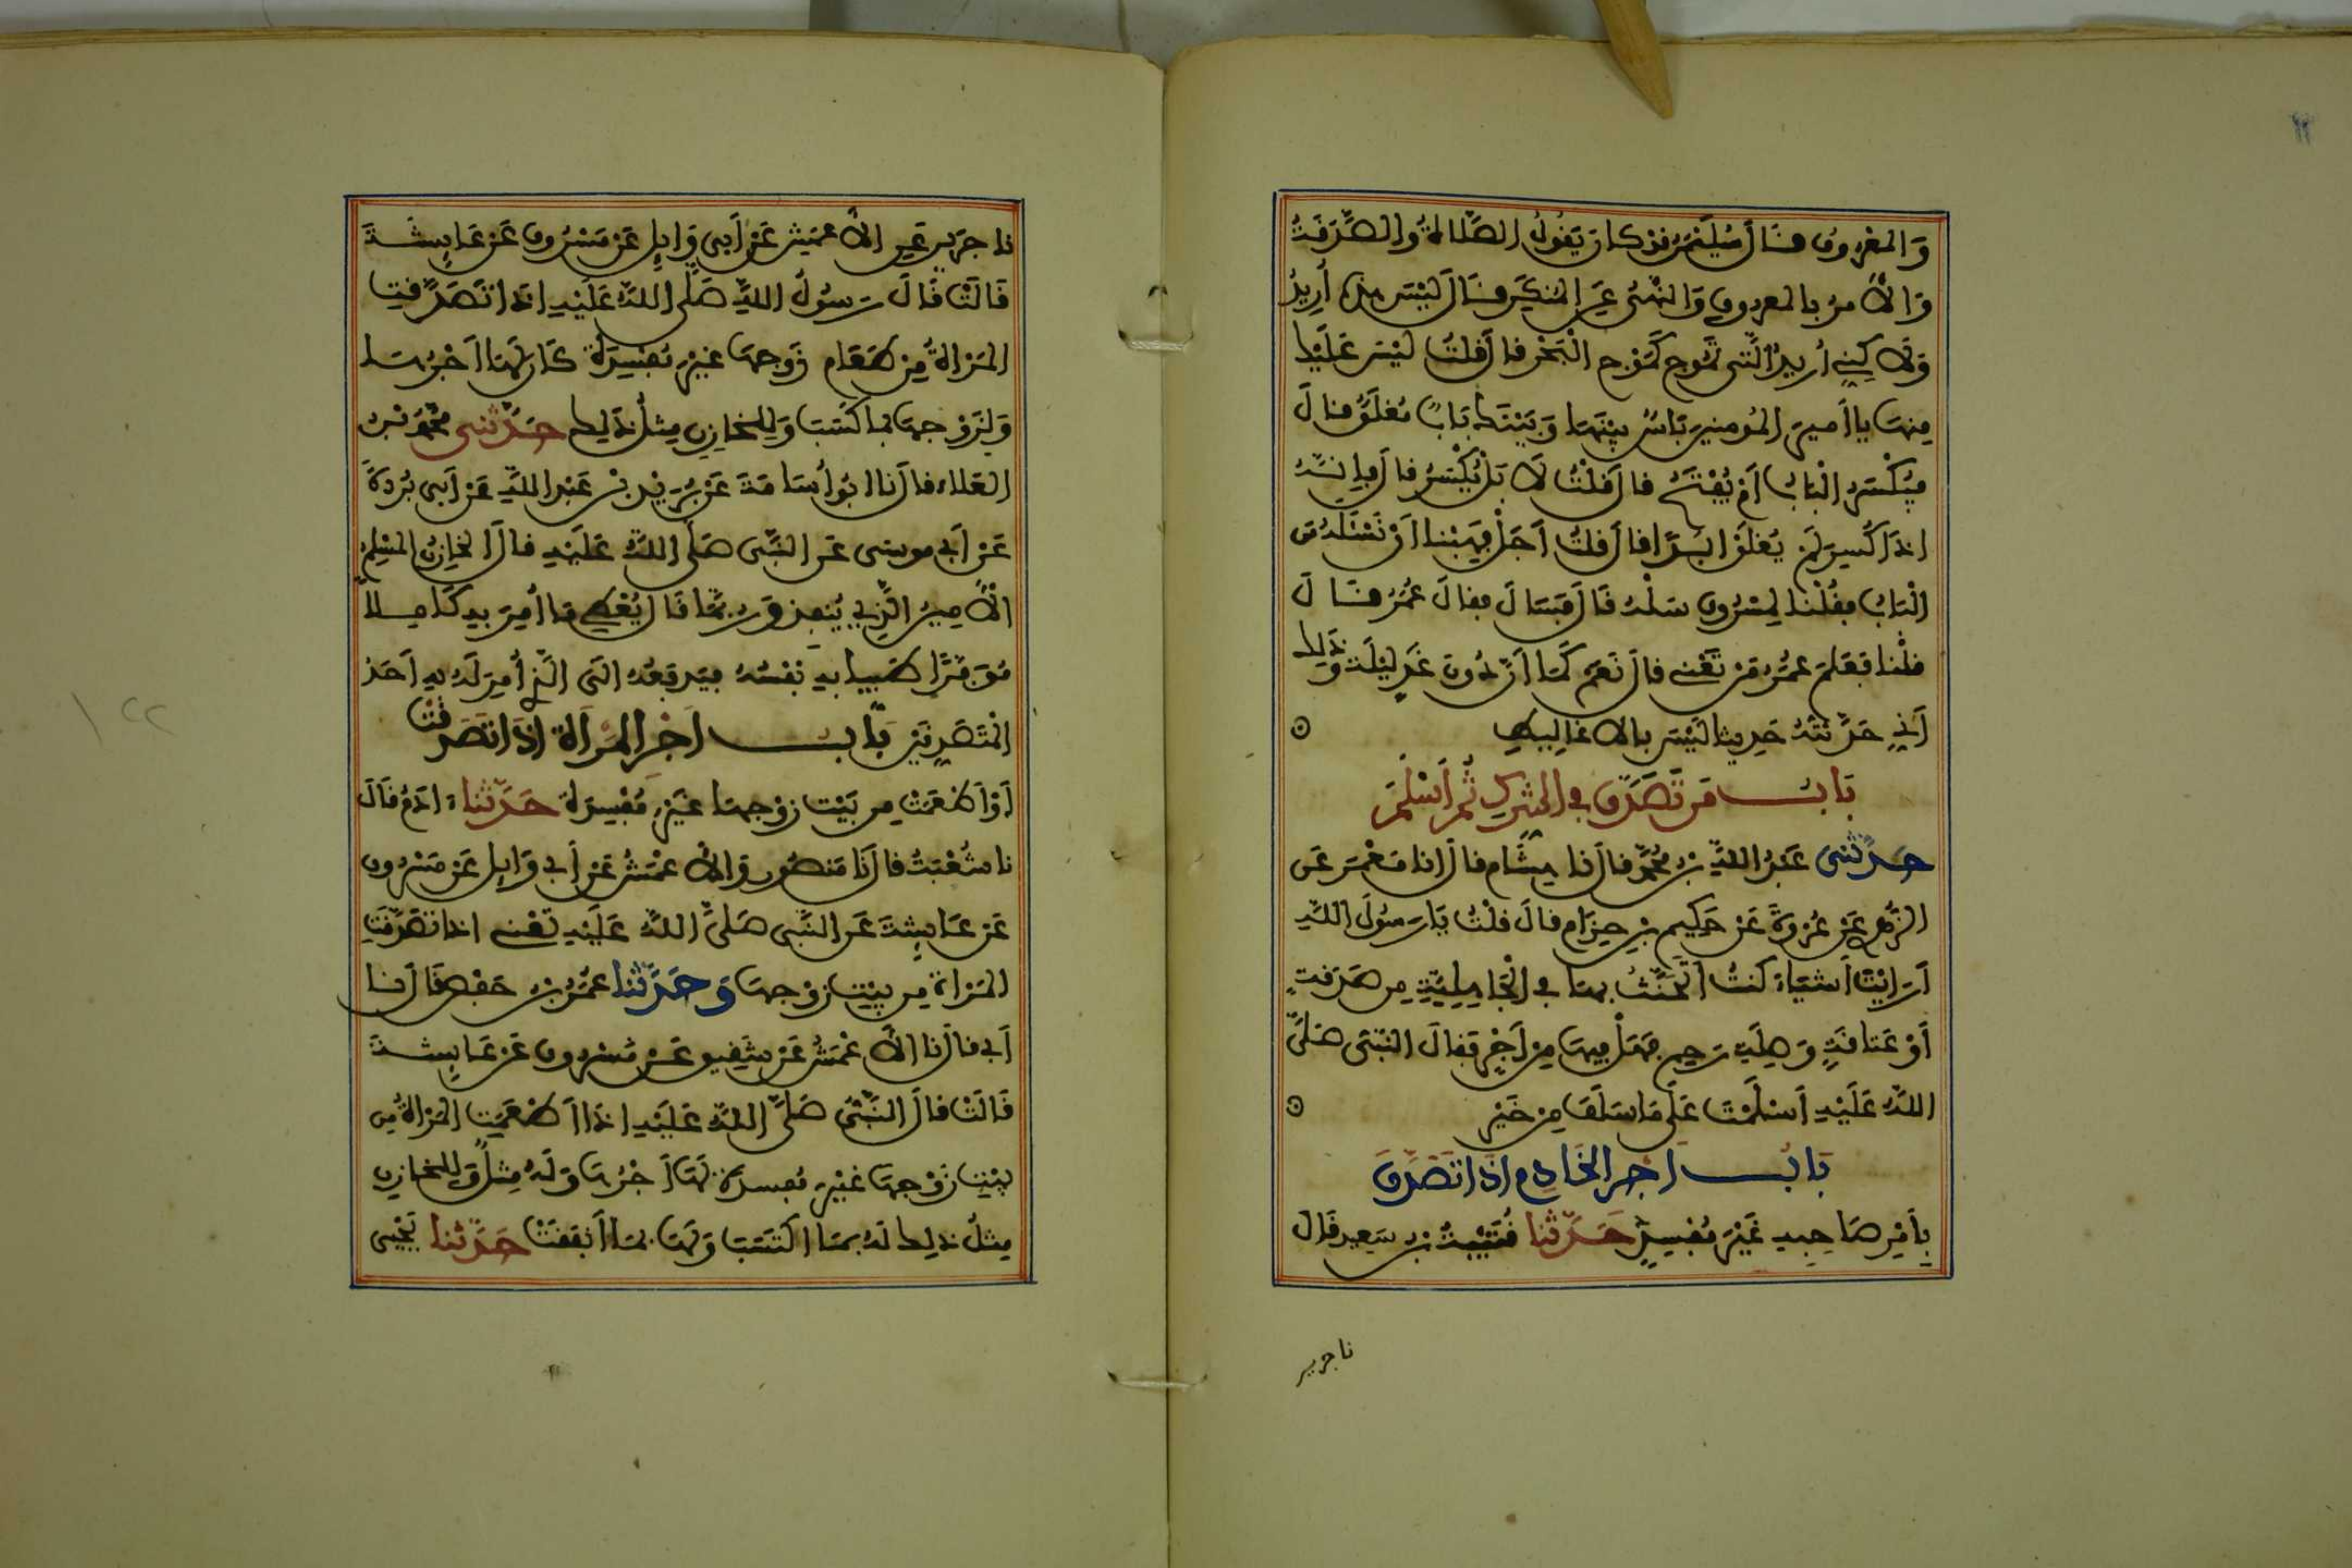 والمعروف فال سليمن فد كان يفول الصلاة والصدفة
والامر بالمعروف والنهي عن المنكر فال ليس هذه أريد
ولاكني أريد التي تموج كموج البحر فال فلت ليس عليك
منها يا أمير المومنين باس بينها وبينك باب مغلق فال
فيكسر الباب أم يفتح فال فلت لا بل يكسر فال فإنه
اذا كسر لم يغلق ابدا فال فلت أجل فهبنا أن نسئله من
الباب ففلنا لمسروق سله فال فسأل ففال عمر فال
فلنا فعلم عمر من تعني فال نعم كما أن دون غد ليلة وذلك
أني حدثته حديثا ليس بالاغاليط
باب من تصدق في الشرك ثم أسلم
حدثني عبد الله بن محمد فال نا هشام فال انا معمر عن
الزهري عن عروة عن حكيم بن حزام فال فلت يا رسول الله
أرايت أشياء كنت اتحنث بها في الجاهلية من صدفة
أو عتافة وصلة رحم فهل فيها من أجر ففال النبي صلى
الله عليه أسلمت على ما سلف من خير
باب اجر الخادم اذا تصدق
بأمر صاحبه غير مفسد حدثنا فتيبة بن سعيد فال
نا جرير
نا جرير عن الاعمش عن أبي وايل عن مسروق عن عايشة
فالت فال رسول الله صلى الله عليه اذا تصدفت
المرأة من طعام زوجها غير مفسدة كان لها أجرها
ولزوجها بما كسب وللخازن مثل ذلك حدثني محمد بن
العلاء فال نا ابو أسامة عن بريد بن عبد الله عن أبي بردة
عن أبي موسى عن النبي صلى الله عليه فال الخازن المسلم
الامين الذي ينفذ وربما فال يعطي ما أمر به كاملا
موفرا طيبا به نفسه فيدفعه الى الذي أمر له به أحد
المتصدفين باب اجر المرأة اذا تصدفت
أو أطعمت من بيت زوجها غير مفسدة حدثنا ادم فال
نا شعبة فال نا منصور والاعمش عن أبي وايل عن مسروق
عن عايشة عن النبي صلى الله عليه تعني اذا تصدفت
المرأة من بيت زوجها وحدثنا عمر بن حفص فال نا
أبي فال نا الاعمش عن شفيق عن مسروق عن عايشة
فالت فال النبي صلى الله عليه اذا أطعمت المرأة من
بيت زوجها غير مفسدة لها أجرها وله مثله وللخازن
مثل ذلك له بما اكتسب ولها بما أنفقت حدثنا يحيى